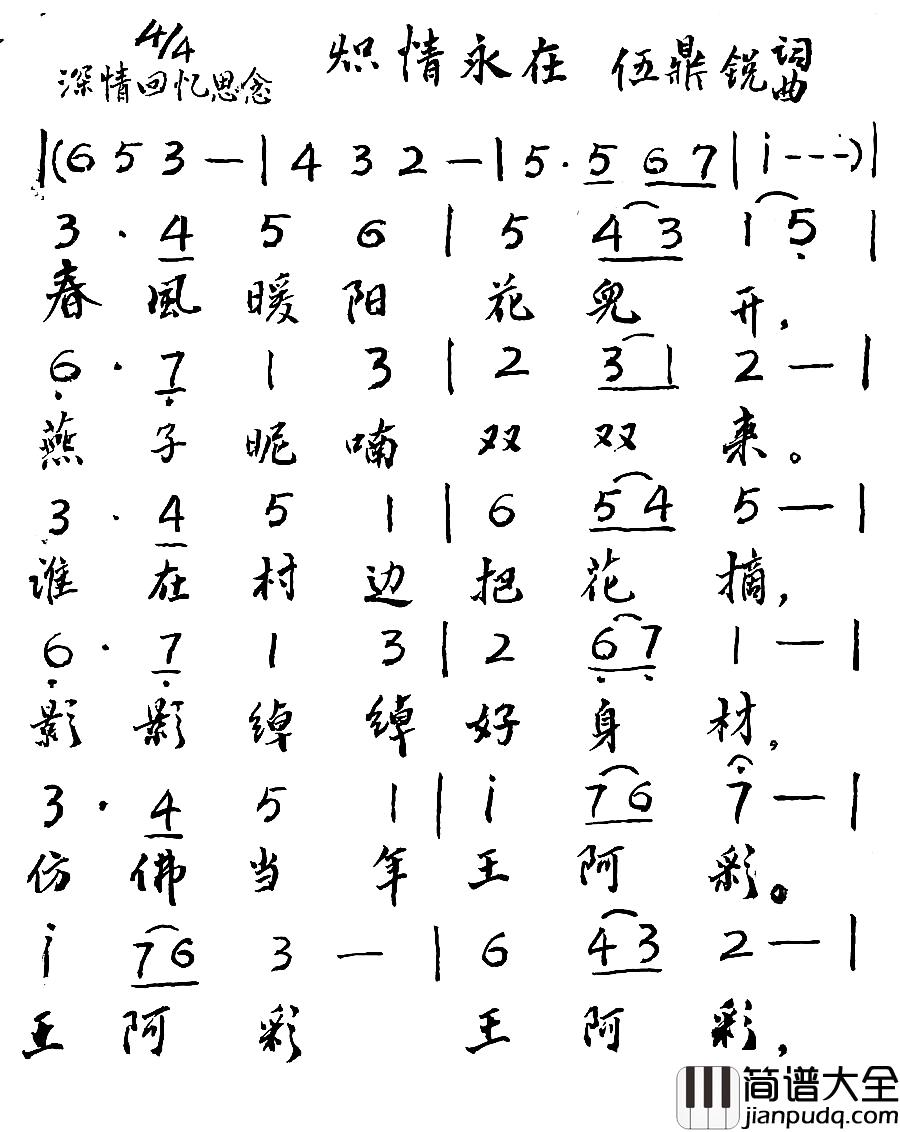 4/4 炽情永在 伍鼎锐 词曲
深情回忆思念
|(6 5 3 —| 4 3 2 —| 5 · 5 6 7 | i - - -)|
3 · 4 5 6 | 5 4 3 1 5 |
春風暖阳 花兒开,
6 · 7 1 3 | 2 3 1 2 — |
燕子昵喃 双双来。
3 · 4 5 1 | 6 5 4 5 — |
谁在村边把花摘,
6 · 7 1 3 | 2 6 7 1 — |
影影绰绰好身材,
3 · 4 5 1 | i 7 6 7 — |
仿佛当年王阿彩。
i 7 6 3 — | 6 4 3 2 — |
王阿彩 王阿彩,
简谱大全
jianpudq.com